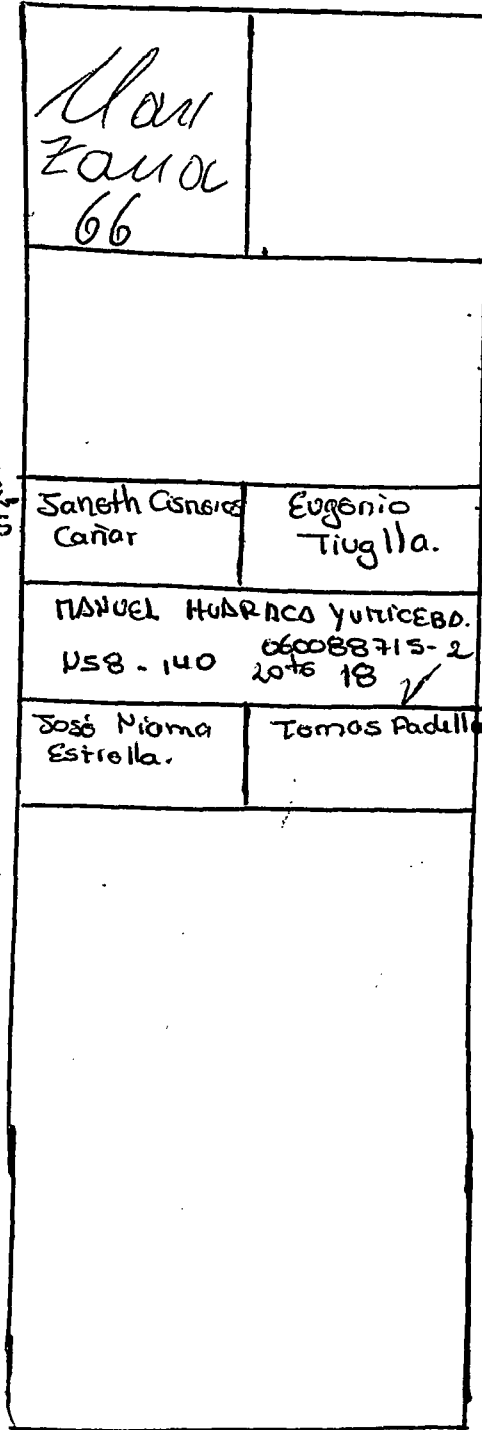 Man
zana
66
Janeth Cisneros
Cañar
Eugenio
Tiuglla.
MANUEL HUARACA YUMICEBA.
060088715-2
NS8-140 Lote 18
José Mioma
Estrella.
Tomas Padilla